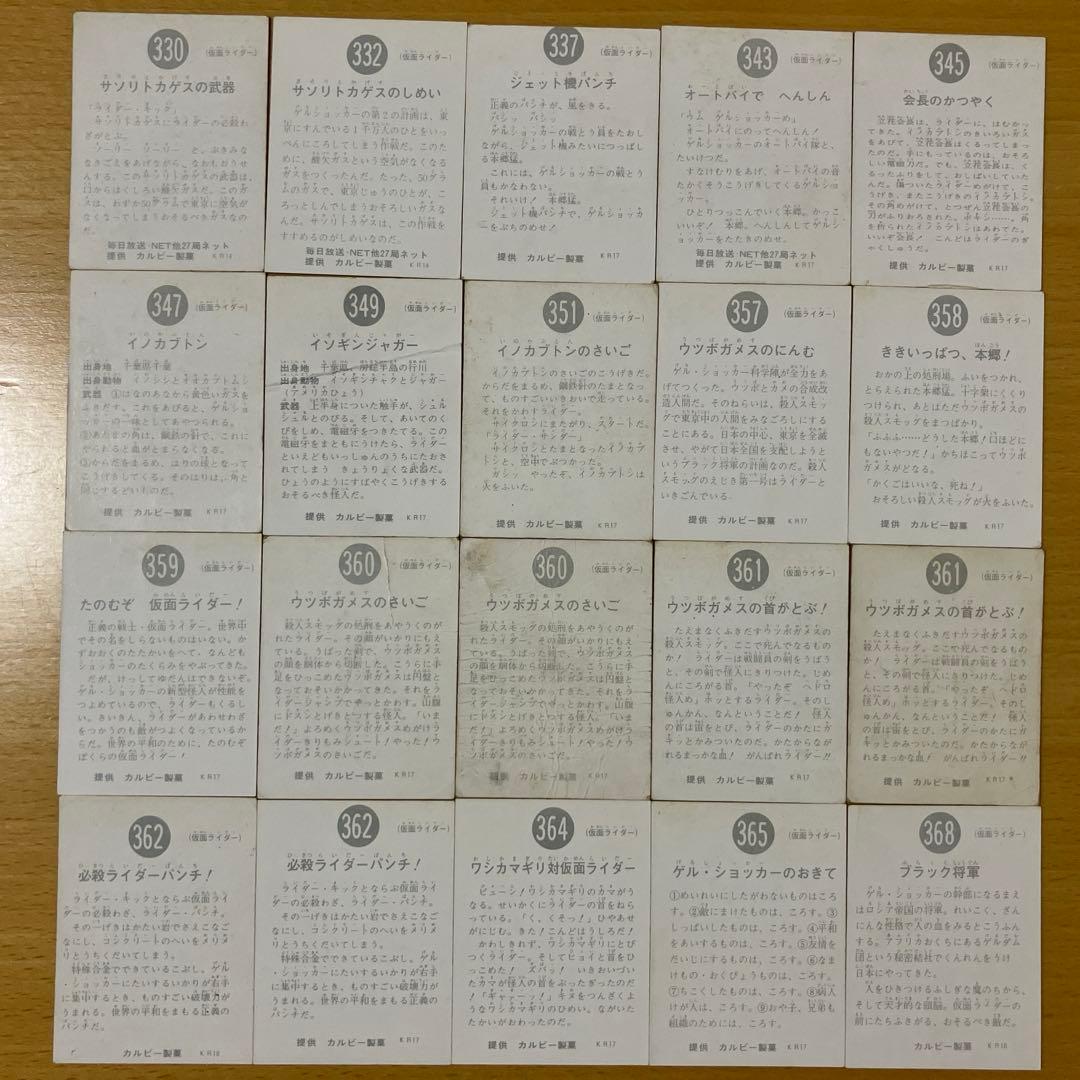 330
(仮面ライダー)
サソリトカゲスの武器
「ライダー・キック」
サソリトカゲスにライダーの必殺わ
ざがとぶ。
ソーリー ソーリー と、ぶきみな
なきごえをあげながら、なおもおうせ
んする。このサソリトカゲスの武器は、
口からはくしろい酸欠ガスだ。このガ
スは、わずか50グラムで東京に空気が
なくなってしまうおそるべきガスなの
だ。
毎日放送・NET他27局ネット
提供 カルビー製菓 KR14
332
(仮面ライダー)
サソリトカゲスのしめい
ゲルショッカーの第2の計画は、東
京にすんでいる1千万人のひとをいっ
ぺんにころしてしまう作戦だ。このた
めに、酸欠ガスという空気がなくなるガ
スをつくったんだ。たった、50グラ
ムのガスで、東京じゅうのひとが、こ
ろっとしんでしまうおそろしいガスな
んだ。サソリトカゲスは、この作戦を
すすめるのがしめいなのだ。
毎日放送・NET他27局ネット
提供 カルビー製菓 KR14
337
(仮面ライダー)
ジェット機パンチ
正義のパンチが、風をきる。
バシッ バシッ
ゲルショッカーの戦とう員をたおし
ながら、ジェット機みたいにつっぱし
る本郷猛。
これには、ゲルショッカーの戦とう
員もかなわない。
それいけ! 本郷猛。
ジェット機パンチで、ゲルショッカ
ーをぶちのめせ!
提供 カルビー製菓 KR17
343
(仮面ライダー)
オートバイで へんしん
「うム ゲルショッカーめ」
オートバイにのってへんしん!
ゲルショッカーのオートバイ隊と、
たいけつだ。
すなけむりをあげ、オートバイの音
たかくそうこうげきしてくるゲルショ
ッカー。
ひとりつっこんでいく本郷。かっこ
いいぞ! 本郷。へんしんしてゲルシ
ョッカーをたたきのめせ。
毎日放送・NET他27局ネット
提供 カルビー製菓 KR17
345
(仮面ライダー)
会長のかつやく
笠花会長は、ライダーに、はむかっ
てきた。イノカブトンのきいろいガス
をあびて、笠花会長はくるってしまっ
たのだ。手にもっているのは、おそろ
しい電磁刀だ。でも、笠花会長は、く
るったふりをして、おしばいしていた
んだ。傷ついたライダーめがけて、こ
うげき、またこうげきのイノカブトン。
その角めがけて、とつぜん笠花会長の
刀がふりおろされた。ボキシ……。角
を折られたイノカブトンはあわてた。
いいぞ会長! こんどはライダーのぎ
ゃくしゅうだ。
提供 カルビー製菓 KR17
347
(仮面ライダー)
イノカブトン
出身地 千葉県千葉
出身動物 イノシシとオオカブトムシ
武器 ①はなのあなから黄色いガスを
ふきだす。これをあびると、ゲルショ
ッカーの一味としてあやつられる。
②あたまの角は、鋼鉄の針で、これに
やられると血がとまらなくなる。
③からだをまるめ、はりの球となって
こうげきしてくる。そのはりは、角と
同じするどいものだ。
提供 カルビー製菓 KR17
349
(仮面ライダー)
イソギンジャガー
出身地 千葉県、房総半島の行川
出身動物 イソギンチャクとジャガー
(アメリカひょう)
武器 上半身についた触手が、シュル
シュルとのびる。そして、あいてのく
びをしめ、電磁牙をつきたてる。この
電磁牙をまともにうけたら、ライダー
といえどもいっしゅんのうちにたおさ
れてしまう きょうりょくな武器だ。
ひょうのようにすばやくこうげきする
おそるべき怪人だ。
提供 カルビー製菓 KR17
351
(仮面ライダー)
イノカブトンのさいご
イノカブトンのさいごのこうげきだ。
からだをまるめ、鋼鉄針のたまとなっ
て、ものすごいきおいで走っている。
それをかわすライダー。
サイクロンにまたがり、スタートだ。
「ライダー・サンダー」
サイクロンとたまとなったイノカブ
トンと、空中でぶつかった。
ガシッ やったぞ、イノカブトンは
火をふいた。
提供 カルビー製菓 KR17
357
(仮面ライダー)
ウツボガメスのにんむ
ゲル・ショッカー科学陣が全力をあ
げてつくった。ウツボとカメの合成改
造人間だ。そのねらいは、殺人スモッ
グで東京中の人間をみなごろしにする
ことにある。日本の中心、東京を全滅
させ、やがて日本全国を支配しようと
いうブラック将軍の計画なのだ。殺人
スモッグのえじき第一号はライダーと
いきごんでいる。
提供 カルビー製菓 KR17
358
(仮面ライダー)
ききいっぱつ、本郷!
おかの上の処刑場。ふいをつかれ、
とらえられた本郷猛。十字架にくくり
つけられ、あとはただウツボガメスの
殺人スモッグをまつばかり。
「ふふふ……どうした本郷!口ほどに
もないやつだ!」かちほこってウツボ
ガメスがどなる。
「かくごはいいな、死ね!」
おそろしい殺人スモッグが火をふいた。
提供 カルビー製菓 KR17
359
(仮面ライダー)
たのむぞ 仮面ライダー!
正義の戦士・仮面ライダー。世界中
でその名をしらないものはいない。か
ずおおくのたたかいをへて、なんども
ショッカーのたくらみをやぶってきた。
だが、けっしてゆだんはできないぞ。
ゲル・ショッカーの新型怪人が性能を
つよめているので、ライダーもくるし
い。きいきん、ライダーがあわせわざ
をつかうのも敵がつよくなっているか
らだ。世界の平和のために、たのむぞ
ぼくらの仮面ライダー!
提供 カルビー製菓 KR17
360
(仮面ライダー)
ウツボガメスのさいご
殺人スモッグの処刑をあやうくのが
れたライダー。その顔がいかりにもえ
ている。うばった剣で、ウツボガメス
の顔を胴体から切断した。こうらに手
足をひっこめたウツボガメスは円盤と
なっておそいかかってきた。それをラ
イダージャンプでさっとかわす。山腹
にドスンとげきとつする怪人。「いま
だ!」よろめくウツボガメスめがけラ
イダーきりもみシュート!やった!ウ
ツボガメスのさいごだ。
提供 カルビー製菓 KR17
360
(仮面ライダー)
ウツボガメスのさいご
殺人スモッグの処刑をあやうくのが
れたライダー。その顔がいかりにもえ
ている。うばった剣で、ウツボガメス
の顔を胴体から切断した。こうらに手
足をひっこめたウツボガメスは円盤と
なっておそいかかってきた。それをラ
イダージャンプでさっとかわす。山腹
にドスンとげきとつする怪人。「いま
だ!」よろめくウツボガメスめがけラ
イダーきりもみシュート!やった!ウ
ツボガメスのさいごだ。
提供 カルビー製菓 KR17
361
(仮面ライダー)
ウツボガメスの首がとぶ!
たえまなくふきだすウツボガメスの
殺人スモッグ。ここで死んでなるもの
か! ライダーは戦闘員の剣をうばう
と、その剣で怪人にきりつけた。じめ
んにころがる首。「やったぞ ヘドロ
怪人め」ホッとするライダー。そのし
ゅんかん、なんということだ! 怪人
の首は宙をとび、ライダーのかたにガ
キッとかみついたのだ。かたからなが
れるまっかな血! がんばれライダー!!
提供 カルビー製菓 KR17
361
(仮面ライダー)
ウツボガメスの首がとぶ!
たえまなくふきだすウツボガメスの
殺人スモッグ。ここで死んでなるもの
か! ライダーは戦闘員の剣をうばう
と、その剣で怪人にきりつけた。じめ
んにころがる首。「やったぞ ヘドロ
怪人め」ホッとするライダー。そのし
ゅんかん、なんということだ! 怪人
の首は宙をとび、ライダーのかたにガ
キッとかみついたのだ。かたからなが
れるまっかな血! がんばれライダー!!
提供 カルビー製菓 KR17
362
(仮面ライダー)
必殺ライダーパンチ!
ライダー・キックとならぶ仮面ライ
ダーの必殺わざ、ライダー・パンチ。
その一げきはかたい岩でさえこなご
なにし、コンクリートのへいをメリメ
リとうちくだいてしまう。
特殊合金でできているこぶし。ゲル
・ショッカーにたいするいかりが右手
に集中するとき、ものすごい破壊力が
うまれる。世界の平和をまもる正義の
パンチだ。
提供 カルビー製菓 KR18
362
(仮面ライダー)
必殺ライダーパンチ!
ライダー・キックとならぶ仮面ライ
ダーの必殺わざ、ライダー・パンチ。
その一げきはかたい岩でさえこなご
なにし、コンクリートのへいをメリメ
リとうちくだいてしまう。
特殊合金でできているこぶし。ゲル
・ショッカーにたいするいかりが右手
に集中するとき、ものすごい破壊力が
うまれる。世界の平和をまもる正義の
パンチだ。
提供 カルビー製菓 KR17
364
(仮面ライダー)
ワシカマギリ対仮面ライダー
ビューン!ワシカマギリのカマがう
なる。せいかくにライダーの首をねら
っている。「く、くそっ!」ひやあせ
がにじむ。きた!こんどはうしろだ!
かわしきれず、ワシカマギリにとび
つくライダー。そしてヒョイと首をひ
っこめた! ズバッ! いきおいづい
たカマが怪人の首をぶったぎったのだ!
「ギャァーッ!」キヌをつんざくよ
うなワシカマギリのひめい。ながいた
たかいがおわったのだ。
提供 カルビー製菓 KR17
365
(仮面ライダー)
ゲル・ショッカーのおきて
①めいれいにしたがわないものはころ
す。②敵にまけたものは、ころす。③
しっぱいしたものは、ころす。④平和
をあいするものは、ころす。⑤友情を
だいじにするものは、ころす。⑥なま
けもの・おくびょうものは、ころす。
⑦ちこくしたものは、ころす。⑧病人
けが人は、ころす。⑨おや子、兄弟も
組織のためには、ころす。
提供 カルビー製菓 KR17
368
(仮面ライダー)
ブラック将軍
ゲル・ショッカーの幹部になるまえ
はロシア帝国の将軍。れいこく、ざん
にんな性格で人の血をみるとこうふん
する。アフリカおくちにあるゲルダム
団という秘密結社でくんれんをうけ
日本にやってきた。
人をひきつけるふしぎな魔のちから、
そして天才的な頭脳。仮面ライダーの
前にたちふさがる、おそるべき敵だ。
カルビー製菓 KR18